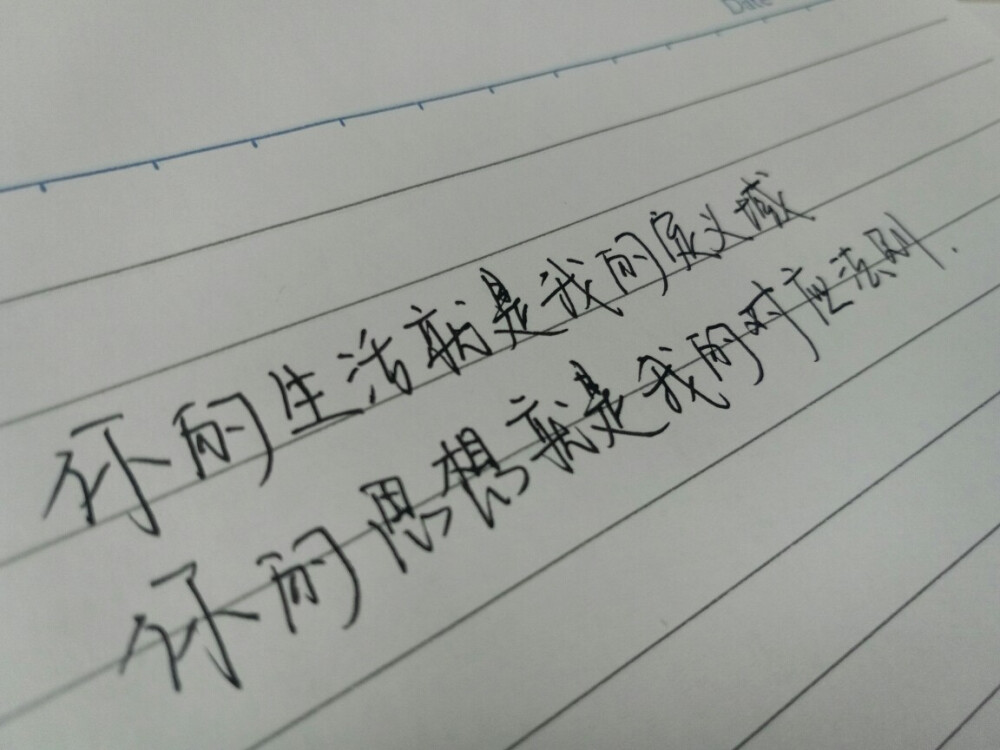 Date
你的生活就是我的定义域
你的思想就是我的对应法则.